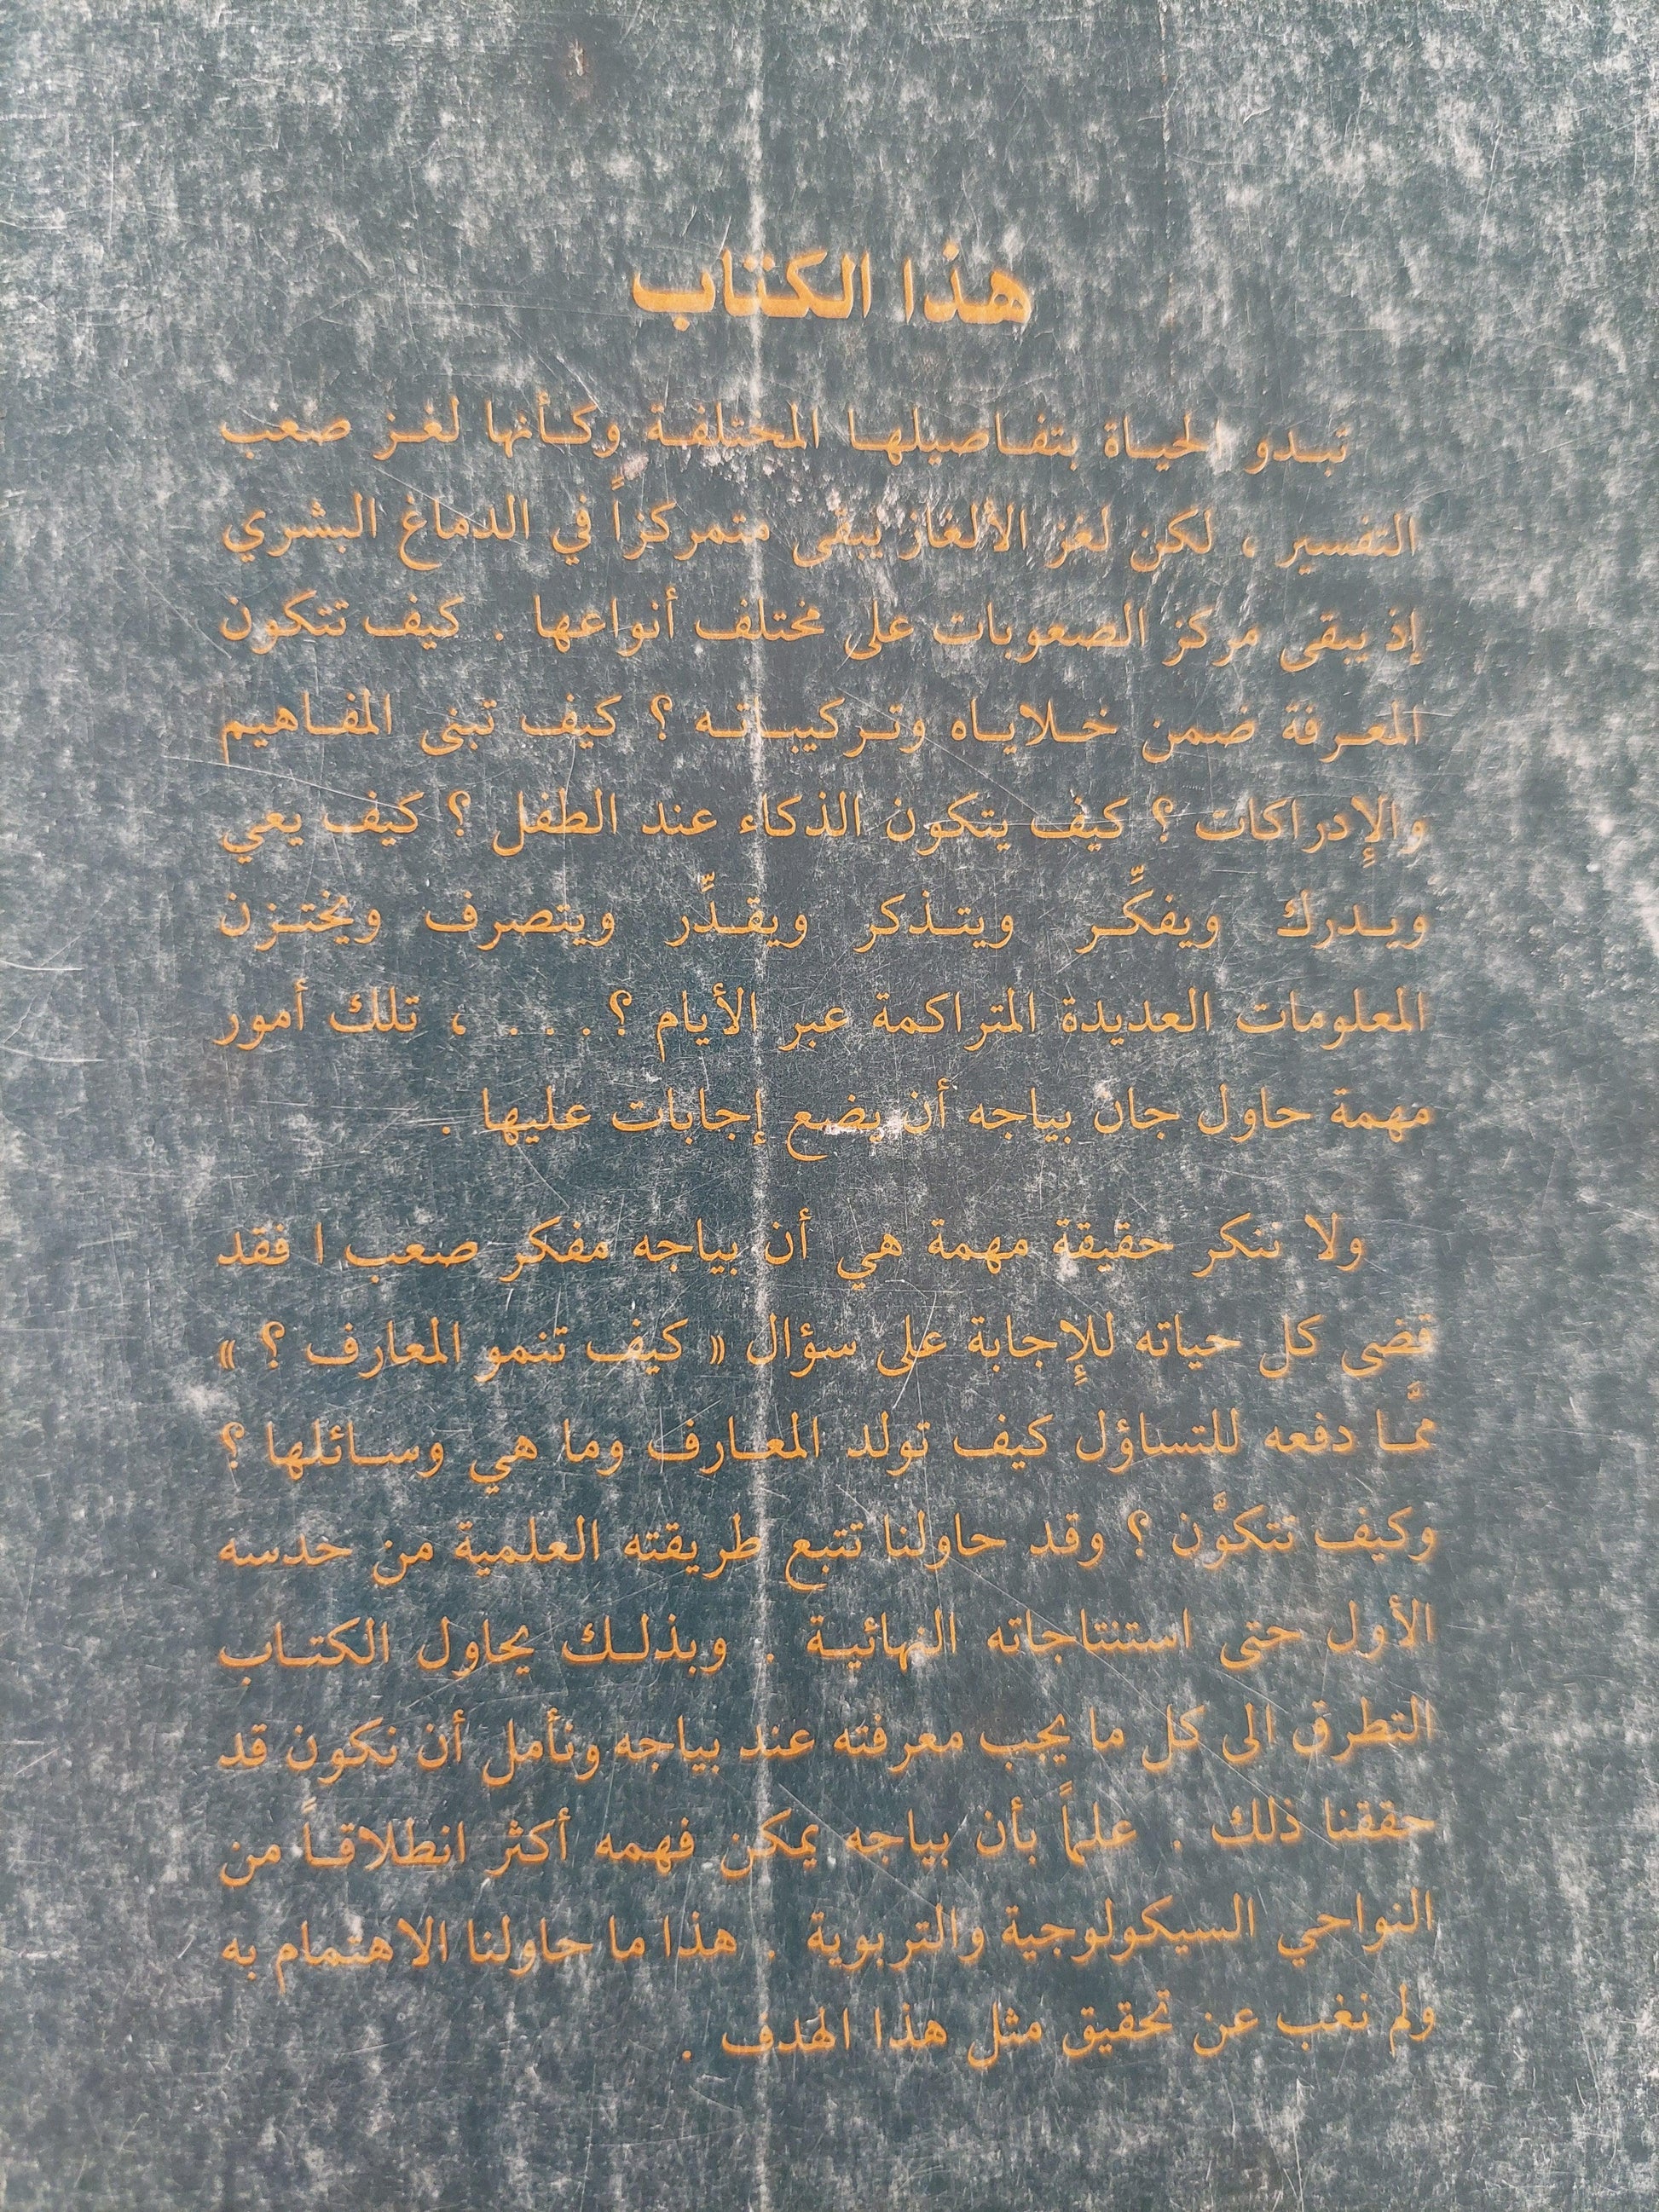 هذا الكتاب
تبدو الحياة بتفاصيلها المختلفة وكأنها لغز صعب
التفسير ، لكن لغز الألغاز يبقى متمركزاً في الدماغ البشري
إذ يبقى مركز الصعوبات على مختلف أنواعها . كيف تتكون
المعرفة ضمن خلاياه وتركيباته ؟ كيف تبنى المفاهيم
والإدراكات ؟ كيف يتكون الذكاء عند الطفل ؟ كيف يعي
ويدرك ويفكِّر ويتذكر ويقدِّر ويتصرف ويختزن
المعلومات العديدة المتراكمة عبر الأيام ؟ . . . ، تلك أمور
مهمة حاول جان بياجه أن يضع إجابات عليها .
ولا ننكر حقيقة مهمة هي أن بياجه مفكر صعب ا فقد
قضى كل حياته للإجابة على سؤال « كيف تنمو المعارف ؟ »
ممَّا دفعه للتساؤل كيف تولد المعارف وما هي وسائلها ؟
وكيف تتكوَّن ؟ وقد حاولنا تتبع طريقته العلمية من حدسه
الأول حتى استنتاجاته النهائية . وبذلك يحاول الكتاب
التطرق الى كل ما يجب معرفته عند بياجه ونأمل أن نكون قد
حققنا ذلك . علماً بأن بياجه يمكن فهمه أكثر انطلاقاً من
النواحي السيكولوجية والتربوية . هذا ما حاولنا الاهتمام به
ولم نغب عن تحقيق مثل هذا الهدف .